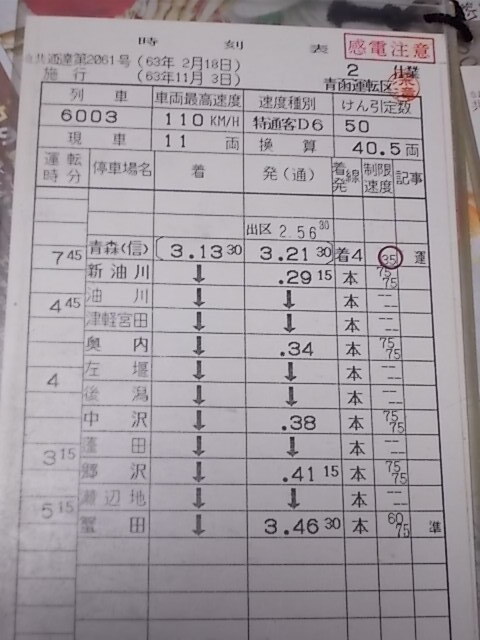 時刻表
感電注意
達第2061号 (63年 2月18日)
施行 (63年11月 3日)
2 仕業
青函運転区
列車 車両最高速度 速度種別 けん引定数
6003 110 KM/H 特通客D6 50
現車 11 両 換算 40.5両
運転時分 停車場名 着 発(通) 着線発 制限速度 記事
出区 2.56 30
青森(信) (3.13 30 3.21 30) 着4 35 運
7 45
新油川 ↓ .29 15 本 75 75
油川 ↓ ↓ 本 -- --
4 45
津軽宮田 ↓ ↓ 本 -- --
奥内 ↓ .34 本 75 75
左堰 ↓ ↓ 本 -- --
4
後潟 ↓ ↓ 本 -- --
中沢 ↓ .38 本 75 75
蓬田 ↓ ↓ 本 -- --
3 15
郷沢 ↓ .41 15 本 75 75
瀬辺地 ↓ ↓ 本 -- --
5 15
蟹田 ↓ 3.46 30 本 60 75 準